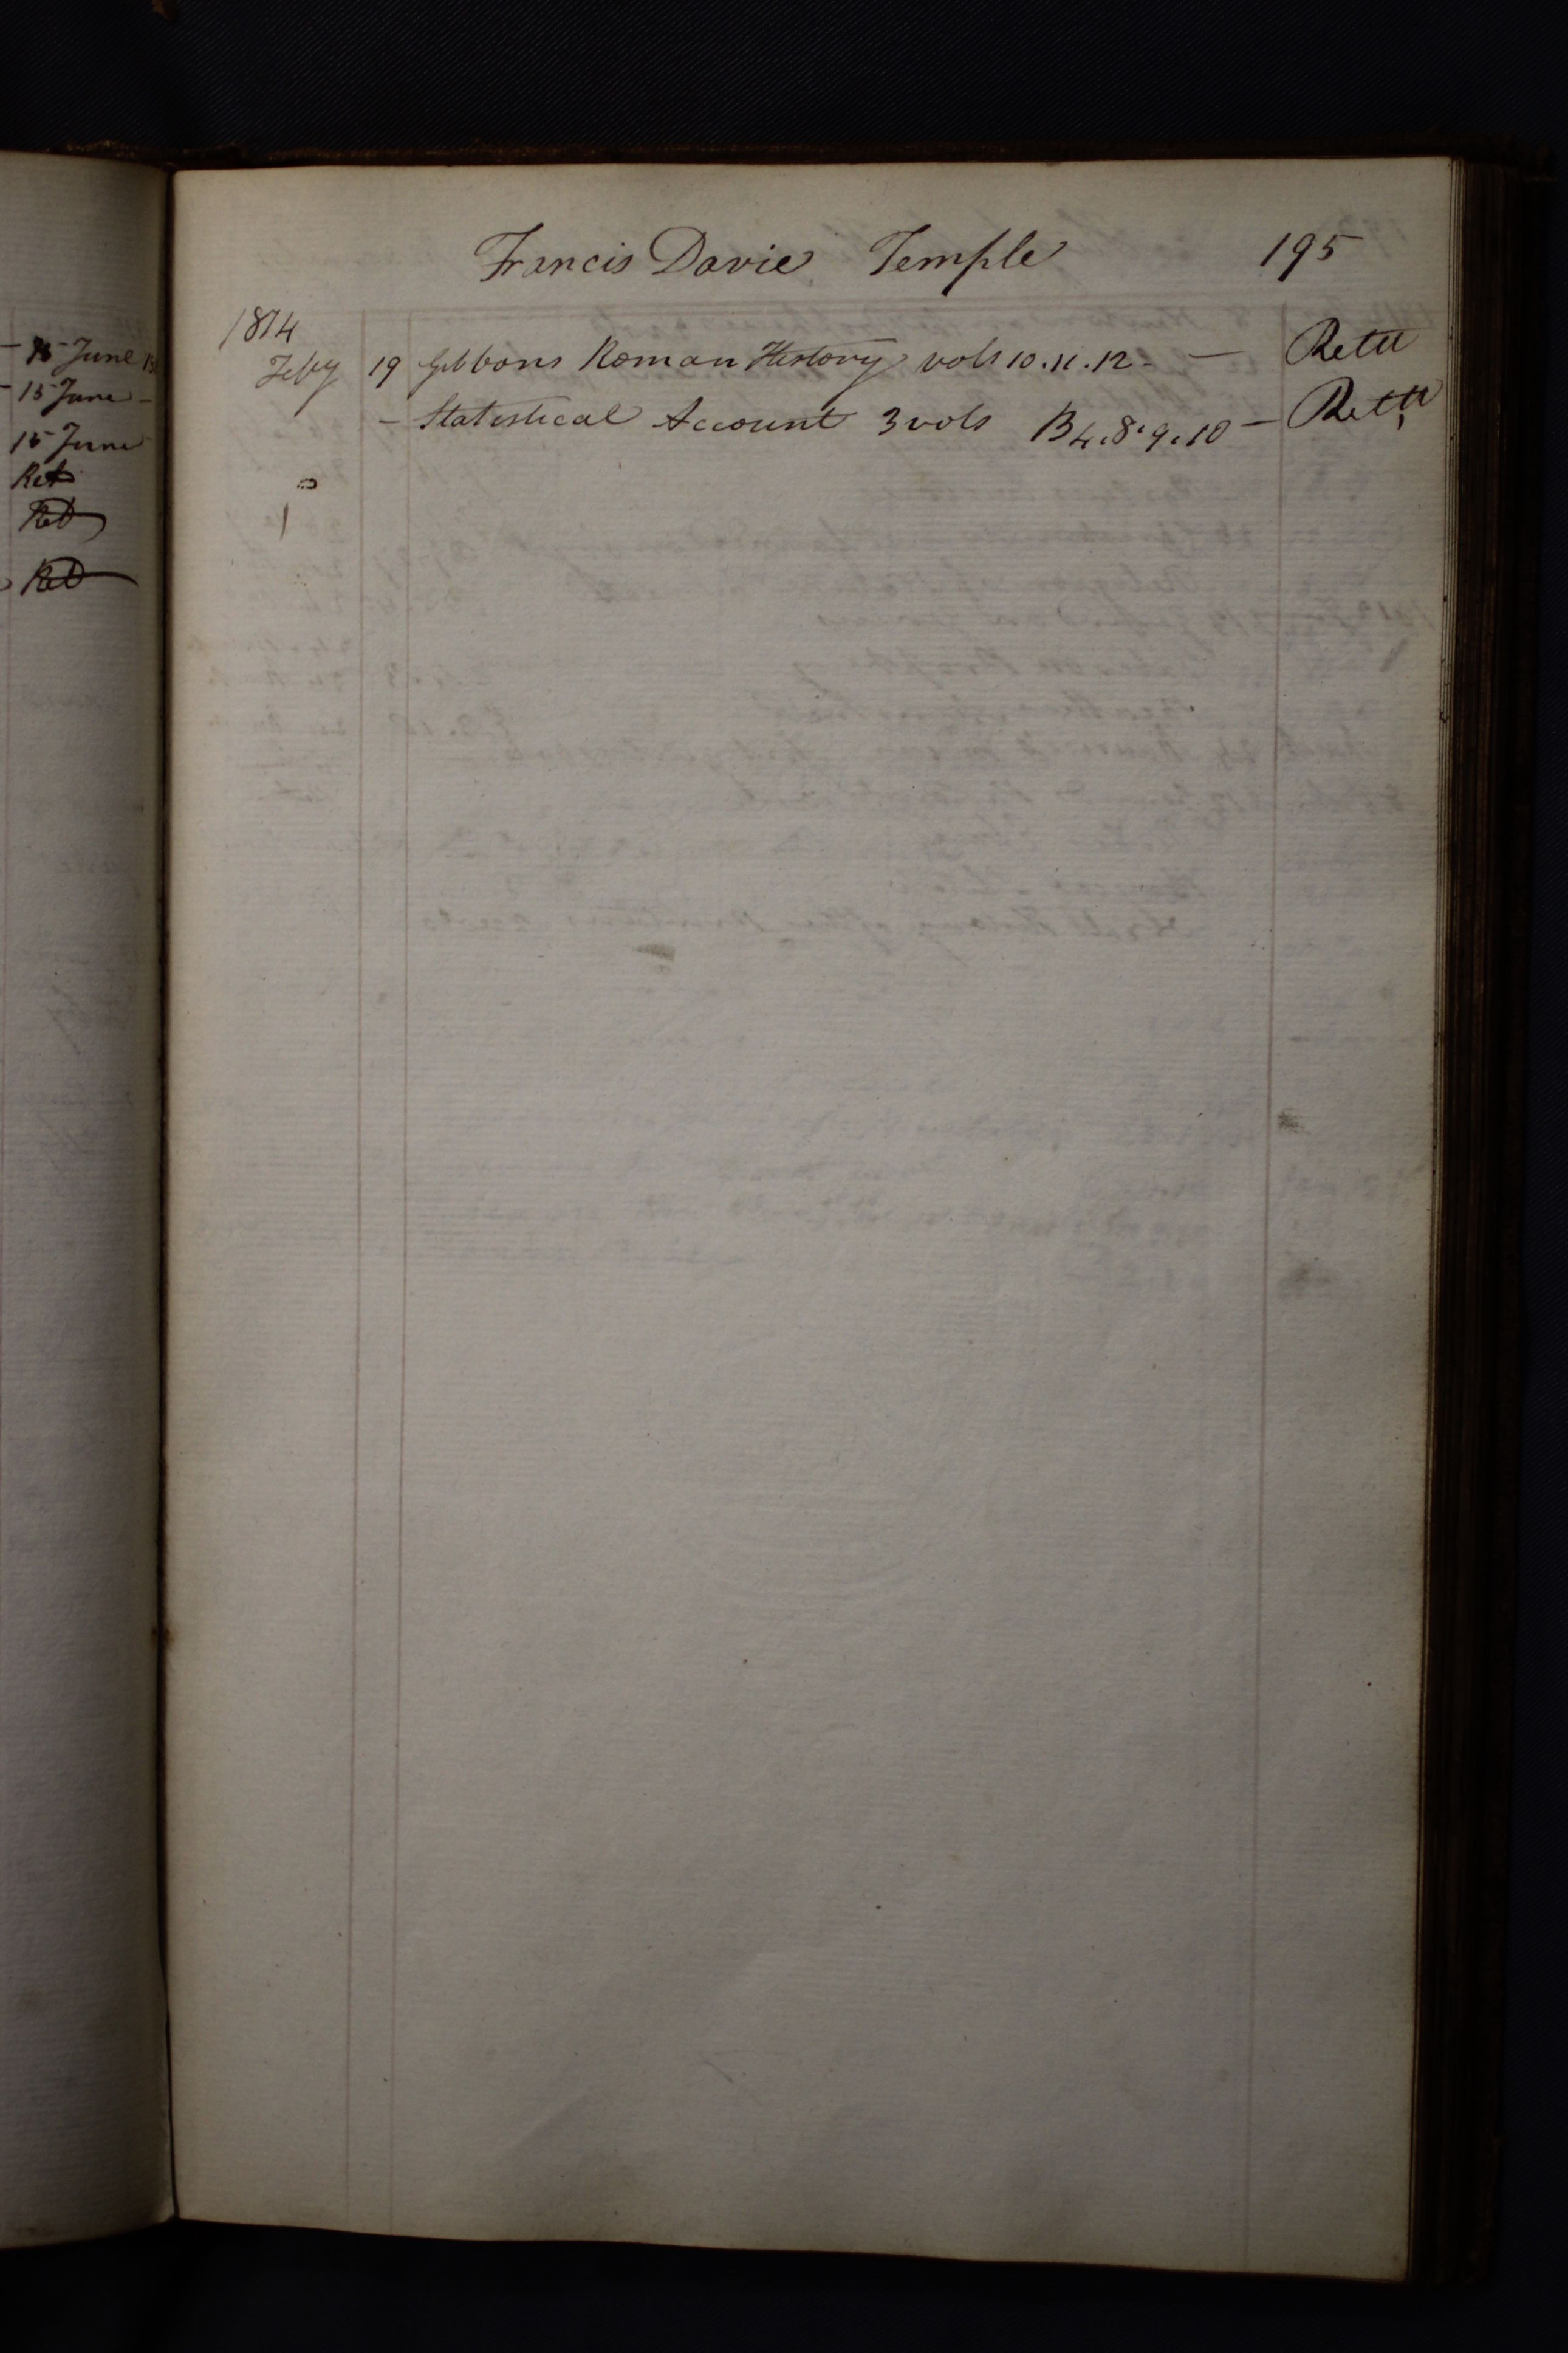 15 June
15 June
15 June
Ret
Ret
Ret
Francis Davie Temple 195
1814
Feby 19 Gibbons Roman History vols 10.11.12 - — Retd
- Statistical Account 3 vols B4.8.9.10 — Retd